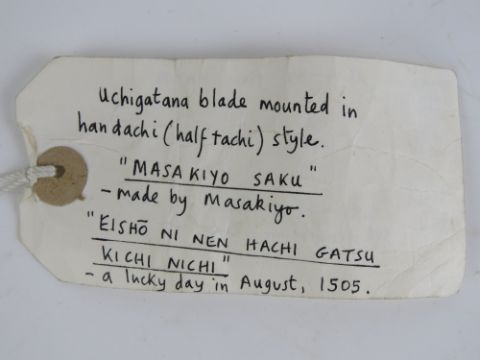 Uchigatana blade mounted in
handachi (half tachi) style.
"MASAKIYO SAKU"
- made by Masakiyo.
"EISHŌ NI NEN HACHI GATSU
KICHI NICHI"
- a lucky day in August, 1505.